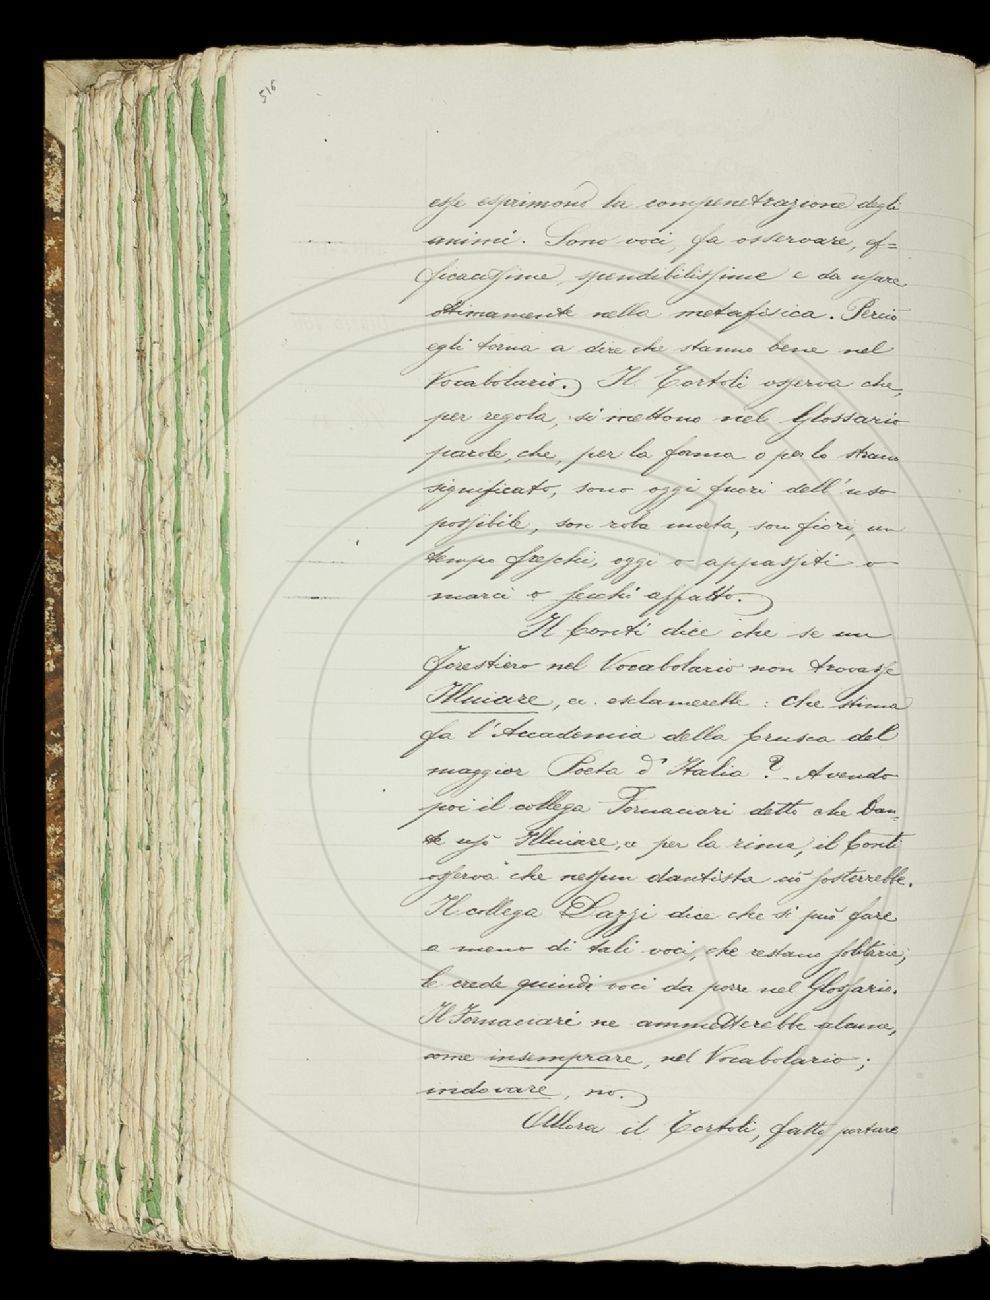 516
esse esprimono la compenetrazione degli
animi. Sono voci, fa osservare, ef=
ficacissime, spendibilissime e da usare
ottimamente nella metafisica. Perciò
egli torna a dire che stanno bene nel
Vocabolario. Il Tortoli osserva che,
per regola, si mettono nel Glossario
parole, che, per la forma o per lo strano
significato, sono oggi fuori dell'uso
possibile, son roba morta, son fiori, un
tempo freschi, oggi o appassiti o
marci o secchi affatto.
Il Conti dice che se un
forestiero nel Vocabolario non trovasse
Illuiare, ei esclamerebbe: Che stima
fa l'Accademia della Crusca del
maggior Poeta d'Italia? - Avendo
poi il collega Fornaciari detto che Dan-
te usò Illuiare, a per la rima, il Conti
osserva che nessun dantista ciò sosterrebbe.
Il collega Dazzi dice che si può fare
a meno di tali voci, che restano solitarie;
le crede quindi voci da porre nel Glossario.
Il Fornaciari ne ammetterebbe alcune,
come insemprare, nel Vocabolario;
indovare, no.
Allora il Tortoli, fatto portare